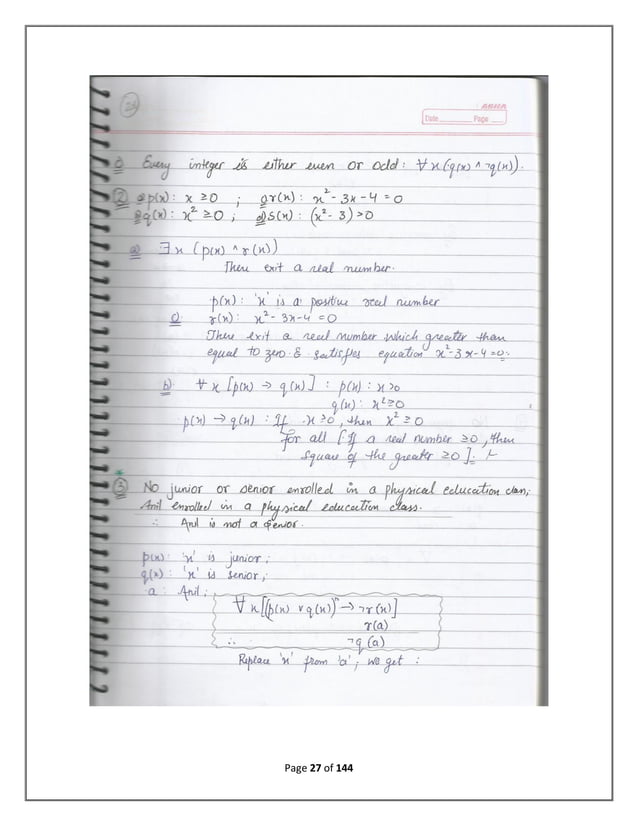 Date Page
① Every integer is either even or odd: ∀x(q(x) ∧ ¬q(x)).
② a) p(x): x ≥ 0 ; c) r(x): x² - 3x - 4 = 0
b) q(x): x² ≥ 0 ; d) S(x): (x² - 3) > 0
a) ∃x (p(x) ∧ r(x))
There exit a real number.
p(x): 'x' is a positive real number
c) r(x): x² - 3x - 4 = 0
There exit a real number which greater than
equal to zero & satisfies equation x² - 3x - 4 = 0.
b) ∀x [p(x) → q(x)] : p(x): x > 0
q(x): x² ≥ 0
p(x) → q(x) : If x ≥ 0, then x² ≥ 0
for all [If a real number ≥ 0, then
square of the greater ≥ 0].
* ③ No junior or senior enrolled in a physical education class;
Anil enrolled in a physical education class.
∴ Anil is not a senior.
p(x): 'x' is junior;
q(x): 'x' is senior;
a : Anil;
∀x[(p(x) ∨ q(x)) → ¬r(x)]
r(a)
∴ ¬q(a)
Replace 'x' from 'a'; we get :
Page 27 of 144